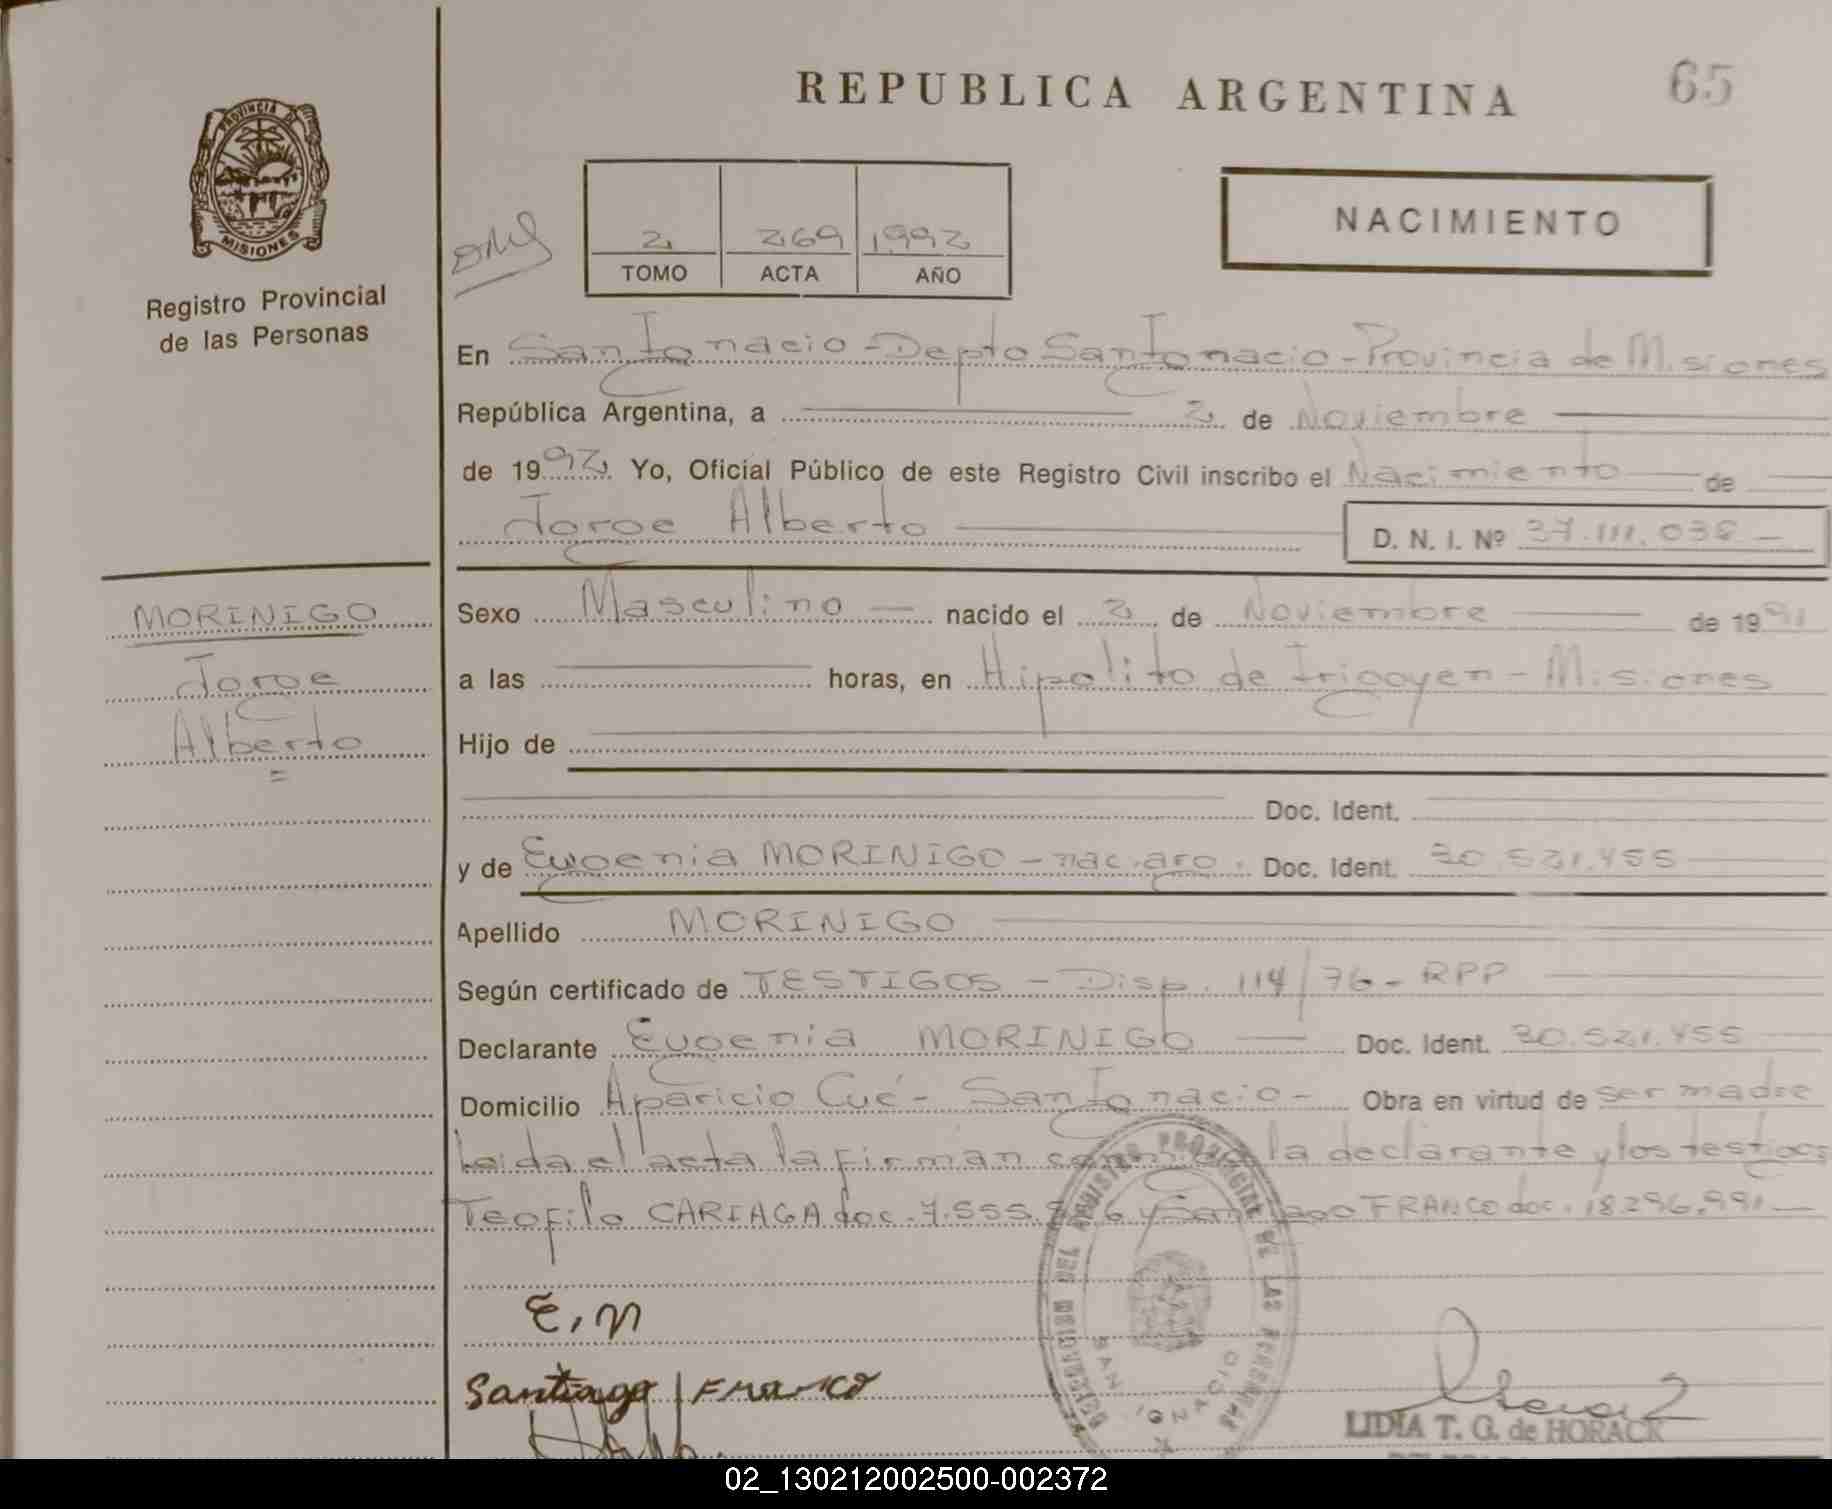 REPUBLICA ARGENTINA
65
PROVINCIA DE
MISIONES
Registro Provincial
de las Personas
2 269 1992
TOMO ACTA AÑO
NACIMIENTO
En San Ignacio - Depto San Ignacio - Provincia de Misiones
República Argentina, a 2 de Noviembre
de 1992 Yo, Oficial Público de este Registro Civil inscribo el Nacimiento de
Jorge Alberto D. N. I. Nº 37.111.038
MORINIGO
Jorge
Alberto
Sexo Masculino nacido el 2 de Noviembre de 1991
a las horas, en Hipolito de Irigoyen - Misiones
Hijo de
Doc. Ident.
y de Eugenia MORINIGO - nac. arg. Doc. Ident. 30.521.455
Apellido MORINIGO
Según certificado de TESTIGOS - Disp. 114/76 - RPP
Declarante Eugenia MORINIGO Doc. Ident. 30.521.455
Domicilio Aparicio Cué - San Ignacio - Obra en virtud de ser madre
Leida el acta la firman conmigo la declarante y los testigos
Teofilo CARIAGA doc. 7.555. 6 y Santiago FRANCO doc. 18.296.991
E, M
Santiago Franco
REGISTRO PROVINCIAL DE LAS PERSONAS
SAN IGNACIO
LIDIA T. G. de HORACK
02_130212002500-002372